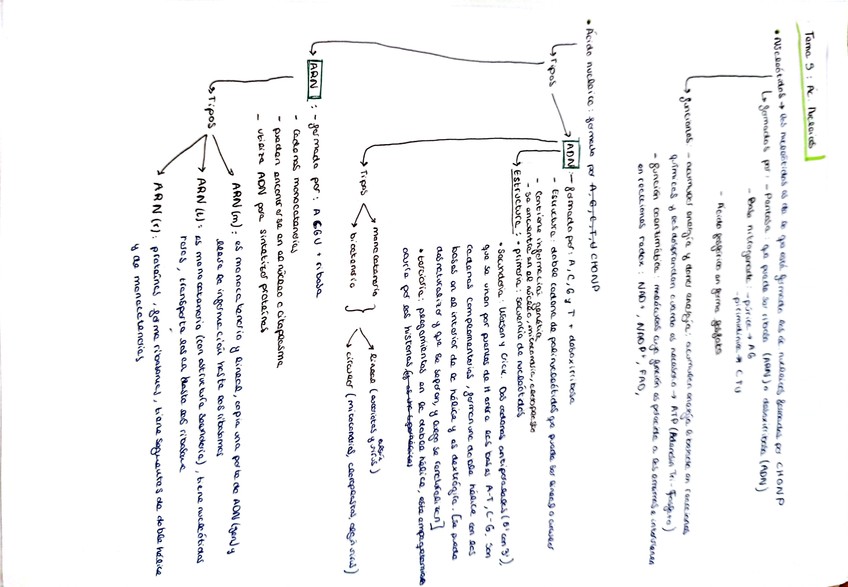 Tema 9: Ác. Nucleicos
• Nucleótidos → Los nucleótidos es de lo que está formado los ác nucleicos formados por CHONP
↳ formados por: - Pentosa, que puede ser ribosa (ARN) o desoxirribosa (ADN)
- Base nitrogenada: - púrica → AG
- pirimidínica → CTU
- Ácido fosfórico en forma fosfato
↳ funciones - acumular energía y donar energía: acumulan energía liberada en reacciones
químicas y las desprenden cuando es necesario → ATP (Adenosín Tri-fosfato)
- función coenzimática: moléculas cuya función es parecida a las enzimas e intervienen
en reacciones redox: NAD+, NADP+, FAD,
• Ácido nucleico: formado por A, G, C, T, U CHONP
↳ Tipos
ADN: - formado por: A, C, G y T + desoxirribosa
- Estructura: doble cadena de polinucleótidos que puede ser lineal o circular
- Contiene información genética
- se encuentra en el núcleo, mitocondria, cloroplasto
Estructura: primaria: secuencia de nucleótidos
• Secundaria: Watson y Crick. Dos cadenas antiparalelas (5' con 3'),
que se unen por puentes de H entre las bases A-T, C-G. Son
cadenas complementarias, forman una doble hélice con las
bases en el interior de la hélice y es dextrógira. [Se puede
desnaturalizar y que se separen, y luego se renaturalicen]
• terciaria: plegamientos en la doble hélice, este empaquetamiento
ocurre por las histonas
Tipos
monocatenario
bicatenario
} → lineal (eucariotas y virus)
→ circular (mitocondrias, cloroplastos, algún virus)
ARN: - formado por: A C G U + ribosa
- Cadenas monocatenarias
- pueden encontrarse en el núcleo o citoplasma
- utiliza ADN para sintetizar proteínas
↳ Tipos
ARN (m): es monocatenario y lineal, copia una parte de ADN (gen) y
lleva la información hasta los ribosomas
ARN (t): es monocatenario (con estructura secundaria), tiene nucleótidos
raros, transporta los aa hasta los ribosomas
ARN (r): proteínas, forma ribosomas, tiene segmentos de doble hélice
y de monocatenarios